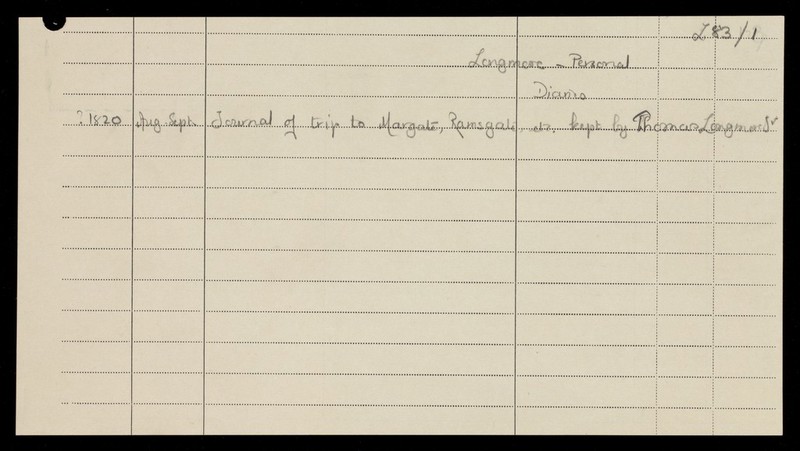 L83/1
Longmore - Personal
Diaries
?1820 Aug-Sept. Journal of trip to Margate, Ramsgate, etc. kept by Thomas Longmore Sr